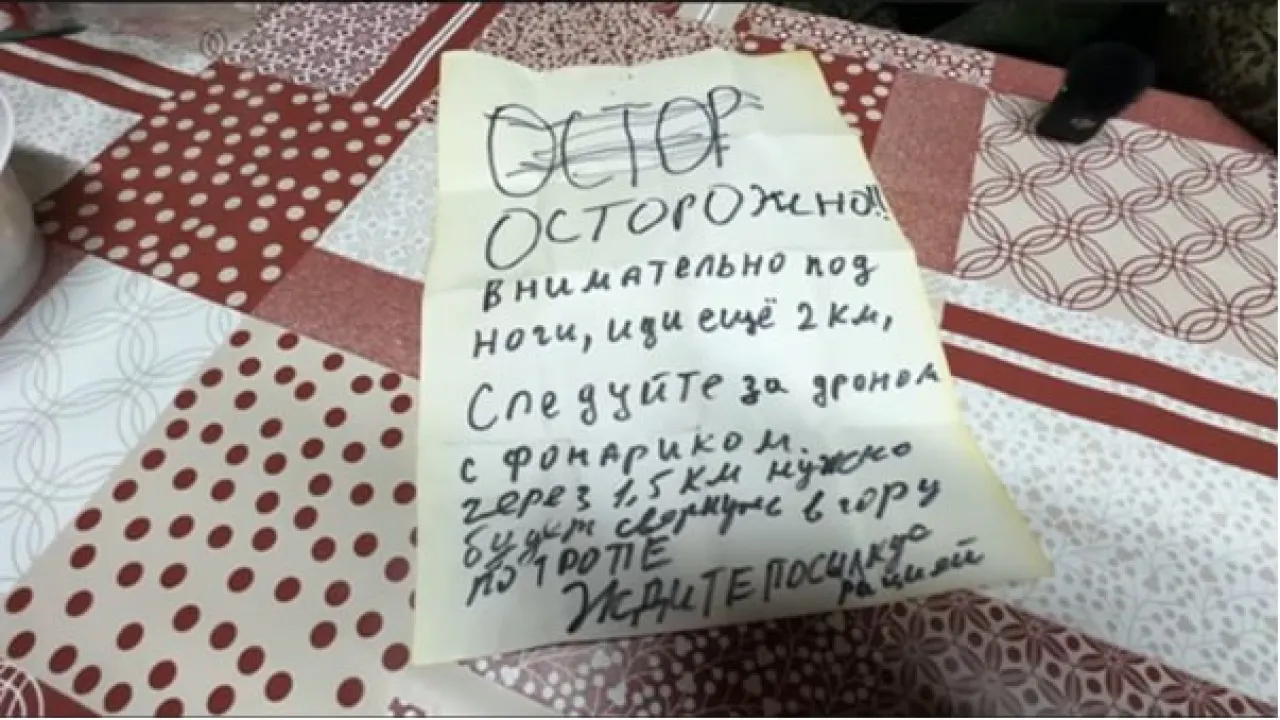 ОСТОР
ОСТОРОЖНО!!
внимательно под
ноги, иди ещё 2 км,
Следуйте за дроном
с фонариком.
через 1,5 км нужно
будет свернуть в гору
по ТРОПЕ
ЖДИТЕ ПОСЫЛКУ с
рацией